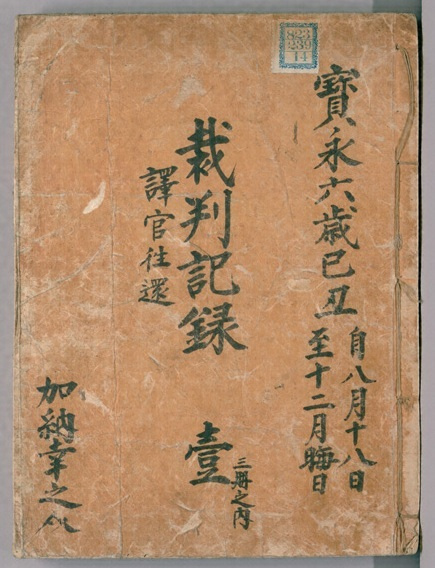 寶永六歳己丑
自八月十八日
至十二月晦日
裁判記録
譯官往還
壹
三冊之内
加納幸之
823
239
14